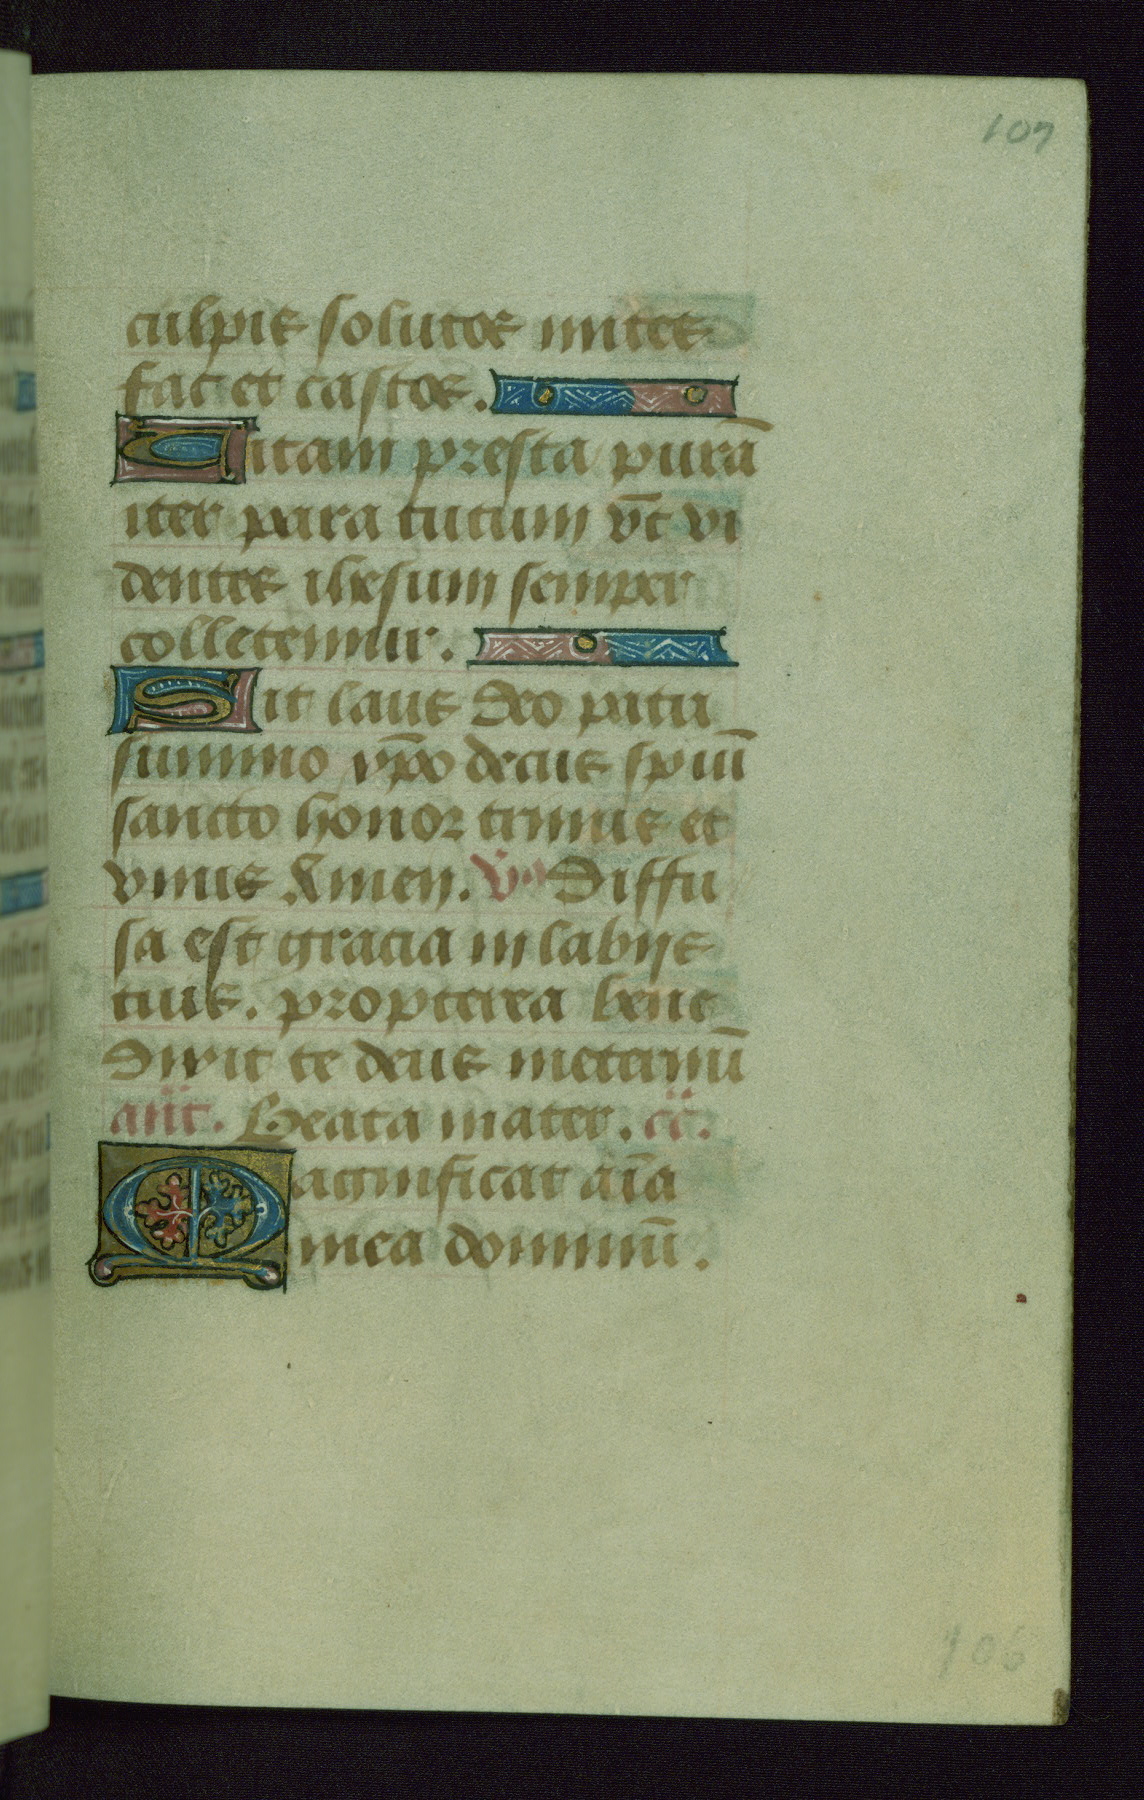 107
culpis solutos mites
fac et castos.
Uitam presta purā
iter para tutum vt̄ vi
dentes ihesum semper
colletemur.
Sit laus deo patri
summo xp̄o decus spiūi
sancto honor trinus et
vnus Amen. v̄s Diffu
sa est gracia in labijs
tuis. propterea bene
dixit te deus in eternū
añt. Beata mater. cc̄.
Magnificat aīa
mea dominū.
106